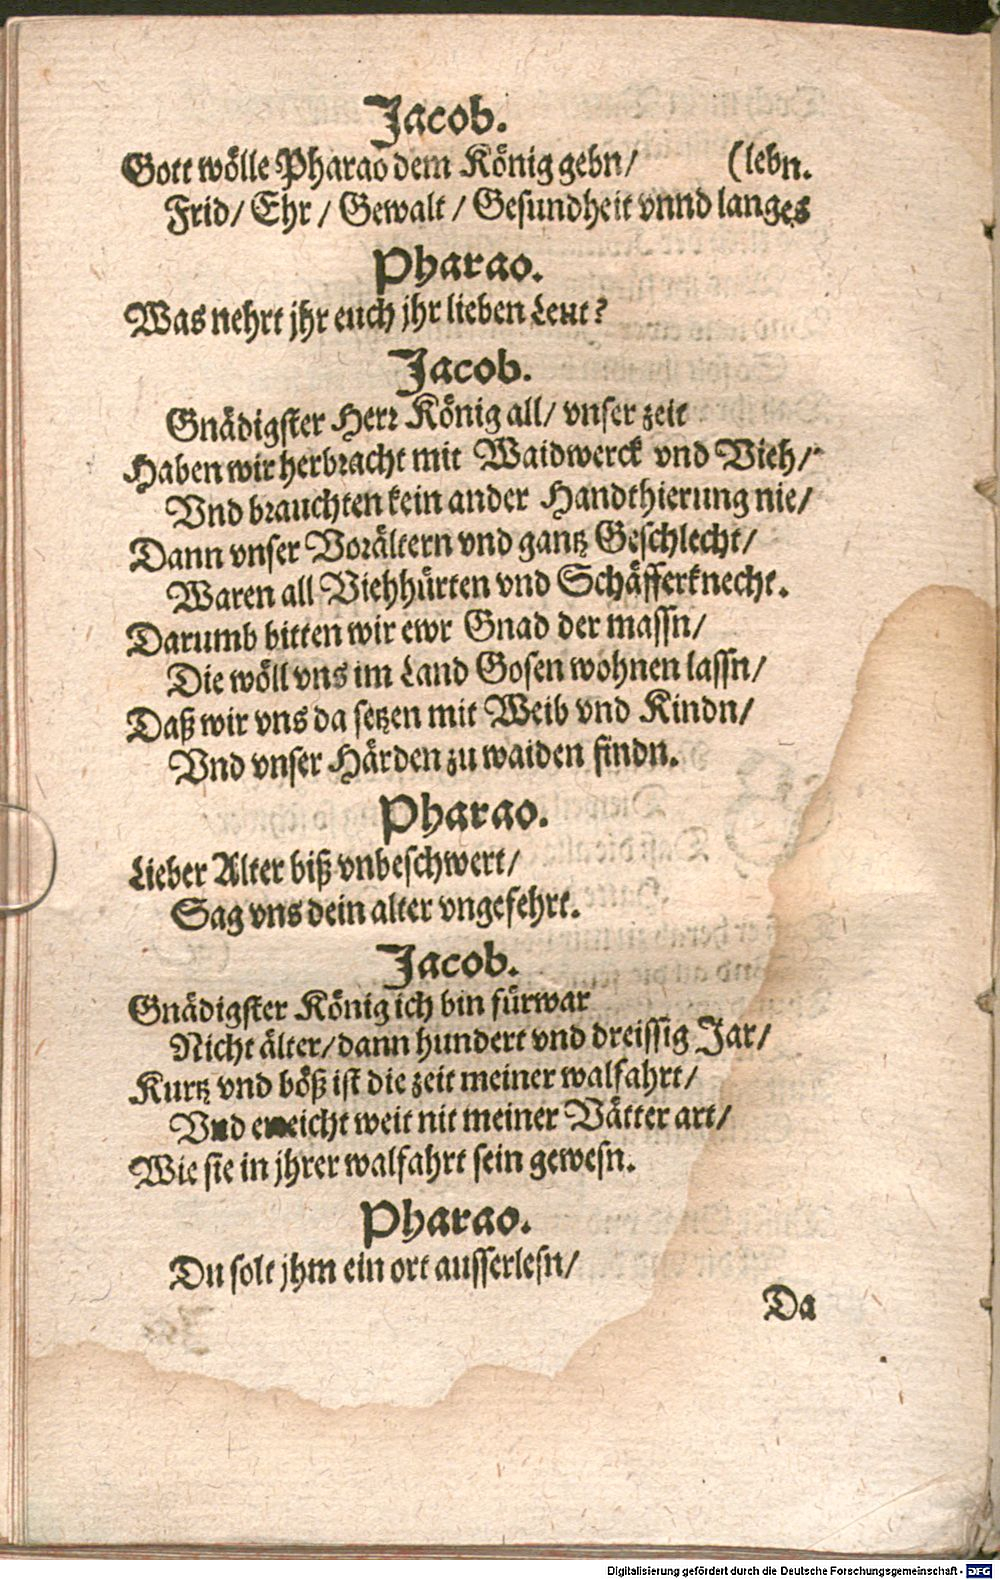 Jacob.
Gott wölle Pharao dem König gebn/ (lebn.
Frid/ Ehr/ Gewalt/ Gesundheit vnnd langes
Pharao.
Was nehrt jhr euch jhr lieben Leut?
Jacob.
Gnädigster Herr König all/ vnser zeit
Haben wir herbracht mit Waidwerck vnd Vieh/
Vnd brauchten kein ander Handthierung nie/
Dann vnser Vorältern vnd gantz Geschlecht/
Waren all Viehhürten vnd Schäfferknecht.
Darumb bitten wir ewr Gnad der massn/
Die wöll vns im Land Gosen wohnen lassn/
Daß wir vns da setzen mit Weib vnd Kindn/
Vnd vnser Härden zu waiden findn.
Pharao.
Lieber Alter biß vnbeschwert/
Sag vns dein alter vngefehrt.
Jacob.
Gnädigster König ich bin fürwar
Nicht älter/ dann hundert vnd dreissig Jar/
Kurtz vnd böß ist die zeit meiner walfahrt/
Vnd erreicht weit nit meiner Vätter art/
Wie sie in jhrer walfahrt sein gewesn.
Pharao.
Du solt jhm ein ort ausserlesn/
Da
Digitalisierung gefördert durch die Deutsche Forschungsgemeinschaft - DFG